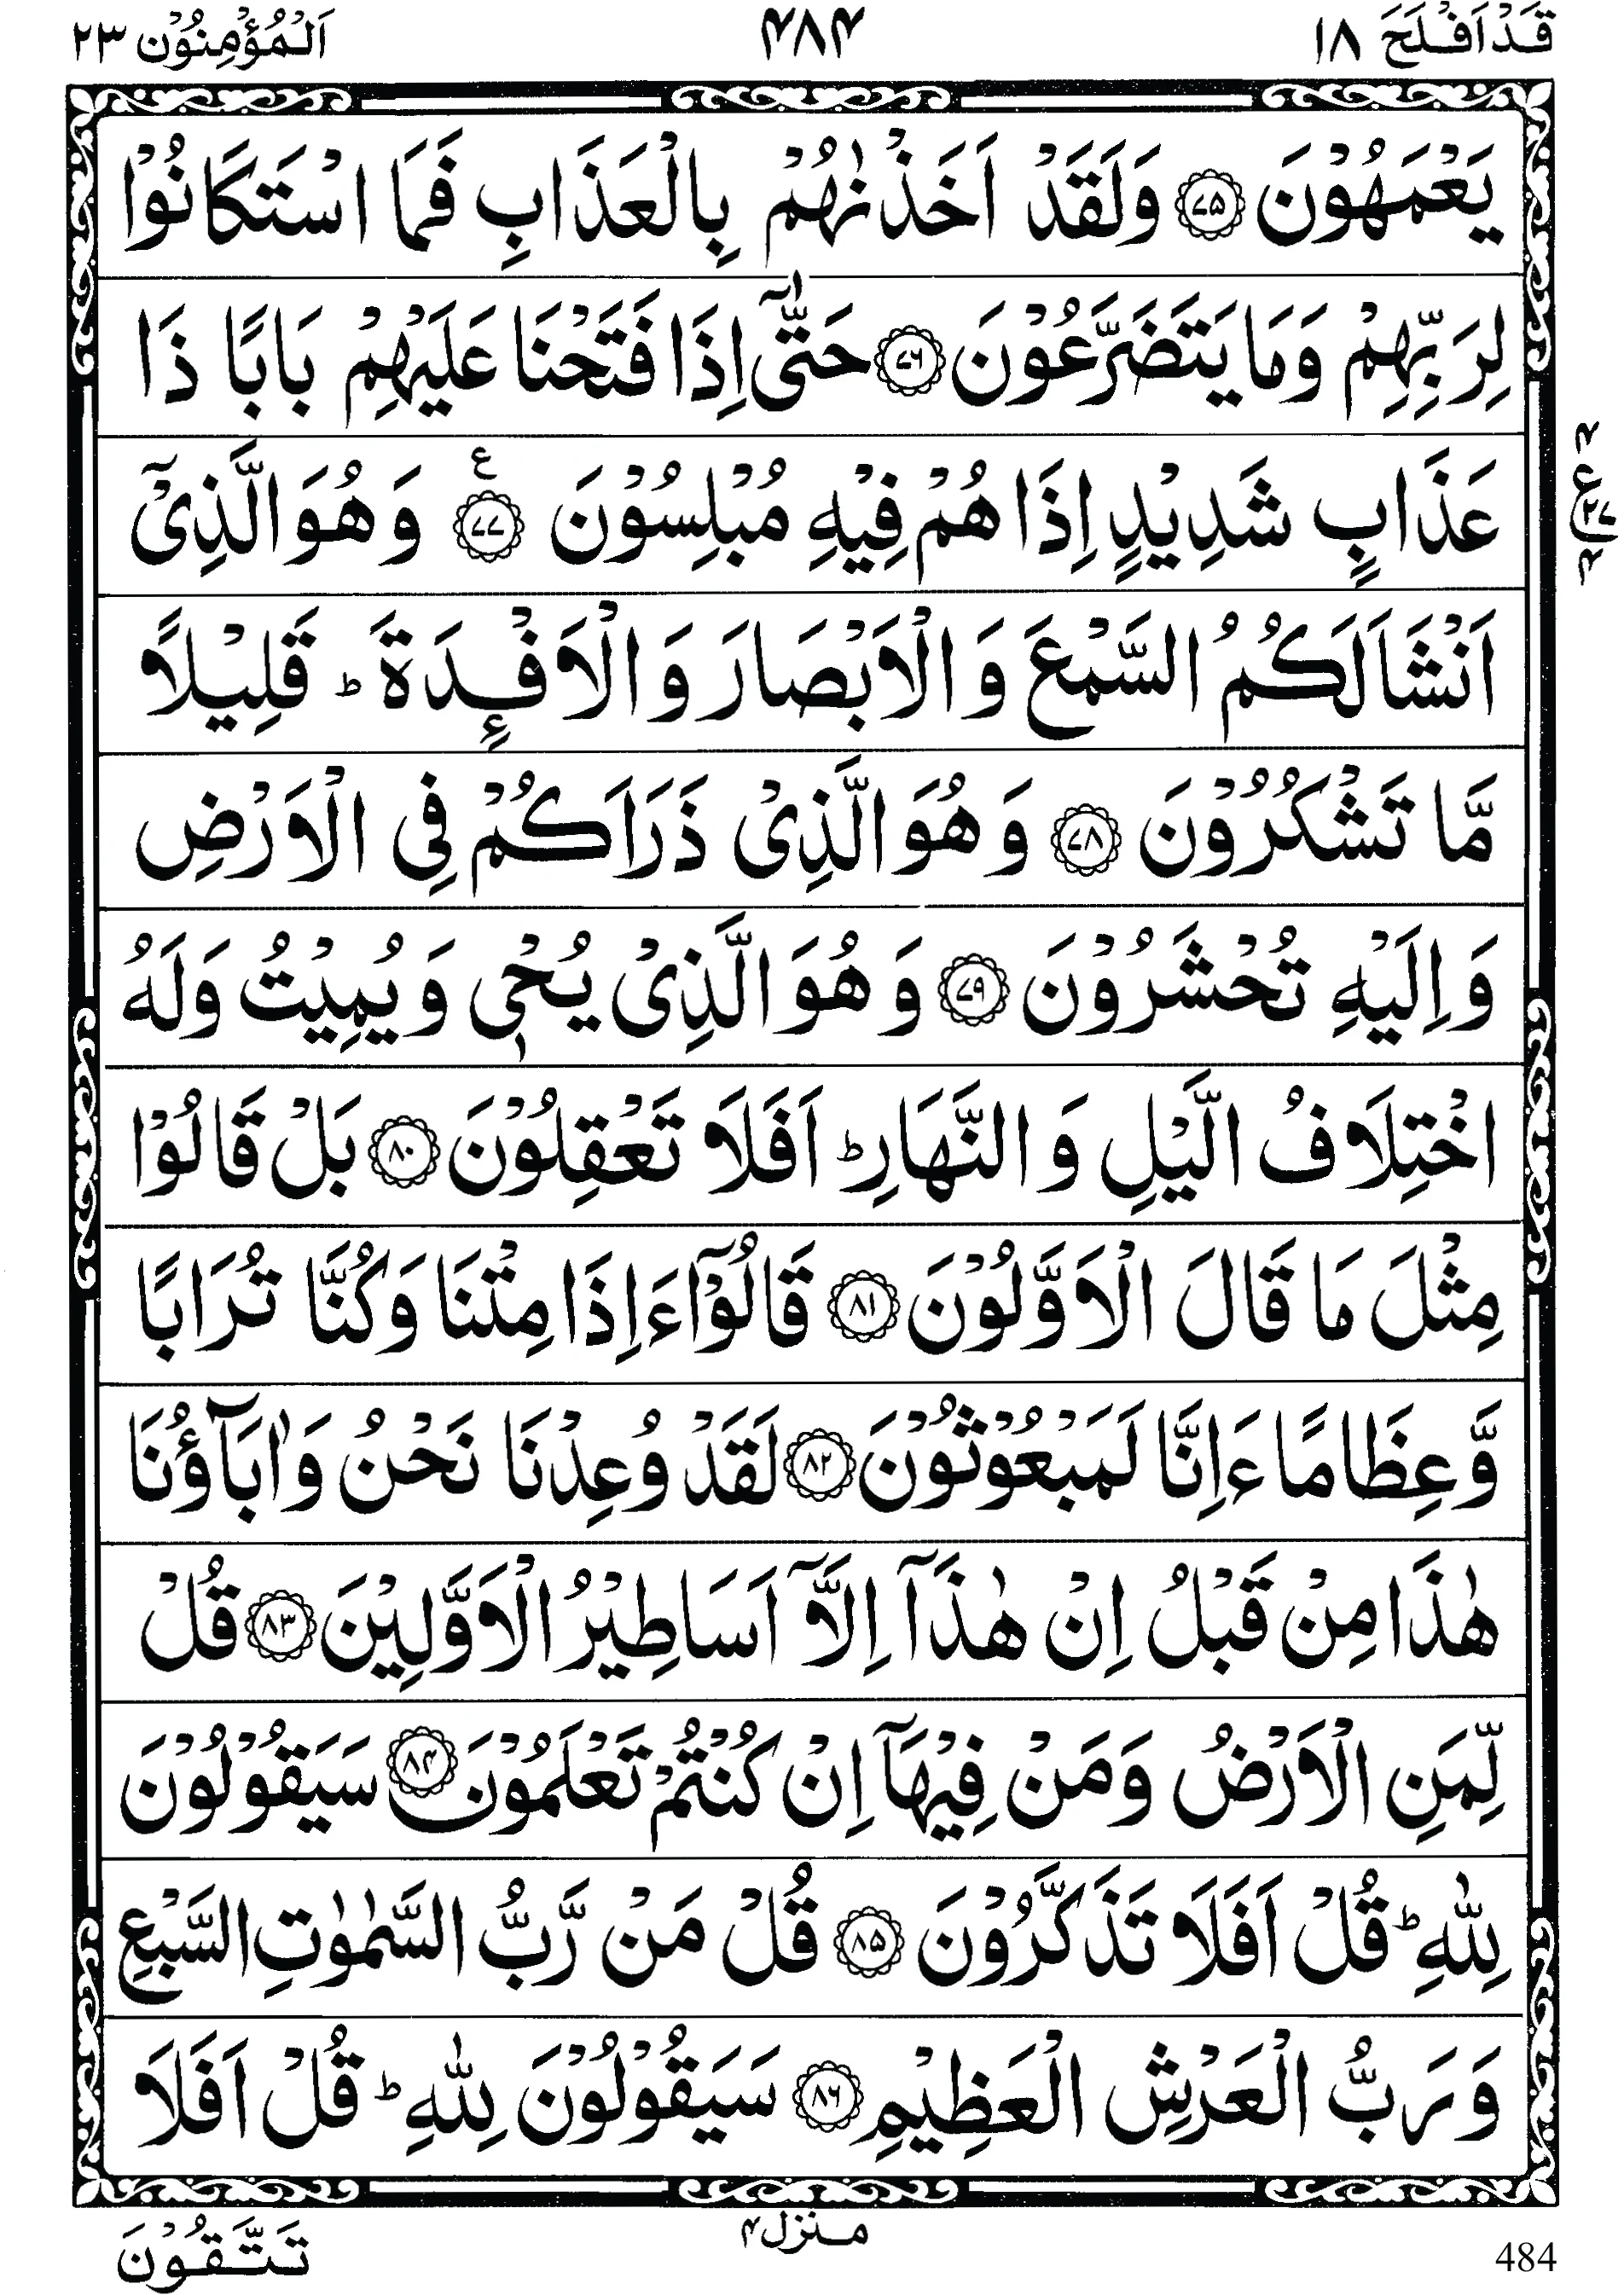 قَدْ اَفْلَحَ ۱۸
۴۸۴
اَلْمُؤْمِنُوْن ۲۳
يَعْمَهُوْنَ ۝۷۵ وَلَقَدْ اَخَذْنٰهُمْ بِالْعَذَابِ فَمَا اسْتَكَانُوْا
لِرَبِّهِمْ وَمَا يَتَضَرَّعُوْنَ ۝۷۶ حَتّٰۤى اِذَا فَتَحْنَا عَلَيْهِمْ بَابًا ذَا
عَذَابٍ شَدِيْدٍ اِذَا هُمْ فِيْهِ مُبْلِسُوْنَ ۝۷۷ ع وَهُوَ الَّذِىْۤ
اَنْشَاَ لَكُمُ السَّمْعَ وَالْاَبْصَارَ وَالْاَفْـِٕدَةَ ؕ قَلِيْلًا
مَّا تَشْكُرُوْنَ ۝۷۸ وَهُوَ الَّذِىْ ذَرَاَكُمْ فِى الْاَرْضِ
وَاِلَيْهِ تُحْشَرُوْنَ ۝۷۹ وَهُوَ الَّذِىْ يُحْىٖ وَيُمِيْتُ وَلَهُ
اخْتِلَافُ الَّيْلِ وَالنَّهَارِ ؕ اَفَلَا تَعْقِلُوْنَ ۝۸۰ بَلْ قَالُوْا
مِثْلَ مَا قَالَ الْاَوَّلُوْنَ ۝۸۱ قَالُوْۤا ءَاِذَا مِتْنَا وَكُنَّا تُرَابًا
وَّعِظَامًا ءَاِنَّا لَمَبْعُوْثُوْنَ ۝۸۲ لَقَدْ وُعِدْنَا نَحْنُ وَاٰبَآؤُنَا
هٰذَا مِنْ قَبْلُ اِنْ هٰذَاۤ اِلَّاۤ اَسَاطِيْرُ الْاَوَّلِيْنَ ۝۸۳ قُلْ
لِّمَنِ الْاَرْضُ وَمَنْ فِيْهَاۤ اِنْ كُنْتُمْ تَعْلَمُوْنَ ۝۸۴ سَيَقُوْلُوْنَ
لِلّٰهِ ؕ قُلْ اَفَلَا تَذَكَّرُوْنَ ۝۸۵ قُلْ مَنْ رَّبُّ السَّمٰوٰتِ السَّبْعِ
وَرَبُّ الْعَرْشِ الْعَظِيْمِ ۝۸۶ سَيَقُوْلُوْنَ لِلّٰهِ ؕ قُلْ اَفَلَا
منزل ۴
تَتَّقُوْنَ
484